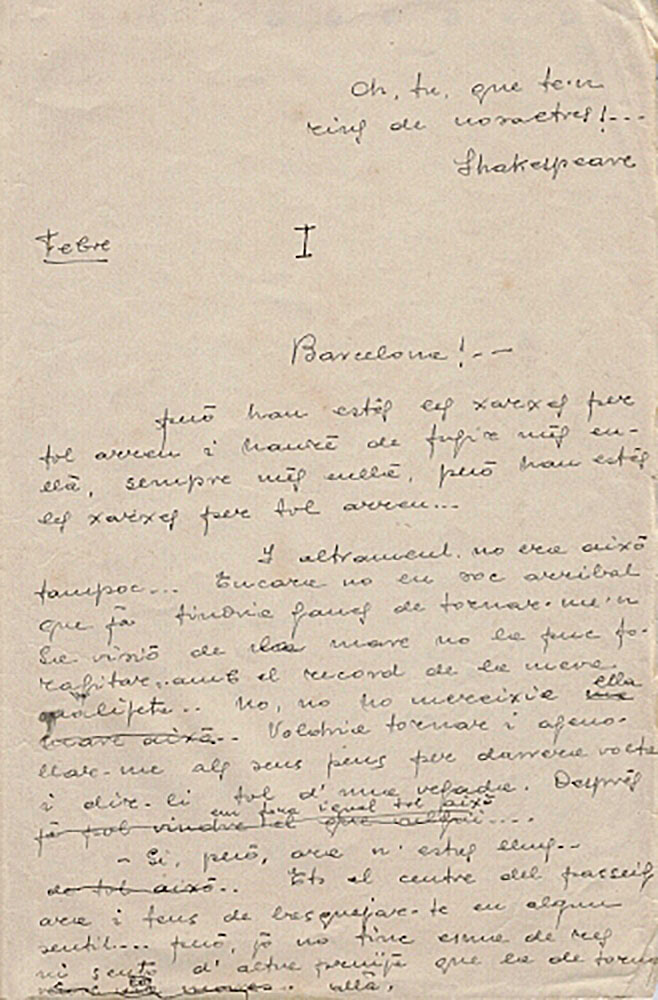 Oh, tu, que te'n
rius de nosaltres!...
Shakespeare
Febre
I
Barcelona!...
però han estès els xarxes per
tot arreu i hauré de fugir més en-
llà, sempre més enllà, però han estès
els xarxes per tot arreu...
I altrament no era això
tampoc... Encara no en soc arribat
que ja tindria ganes de tornar-me'n
La visió de la mare no la puc fo-
ragitar.. amb el record de la meva
.. No, no ho mereixia ella
mare això.. Voldria tornar i ageno-
llar-me als seus peus per darrera volta
i dir-li tot d'una vegada. Després
em fora igual tot això
ja pot vindre el que sigui....
- Si, però, ara n'estàs lluny..
de tot això.. Ets el centre del passeig
ara i tens de bresquejar-te en algun
sentit... però, jo no tinc esma de res
ni sento d'altra pruïja que la de torna
allà.